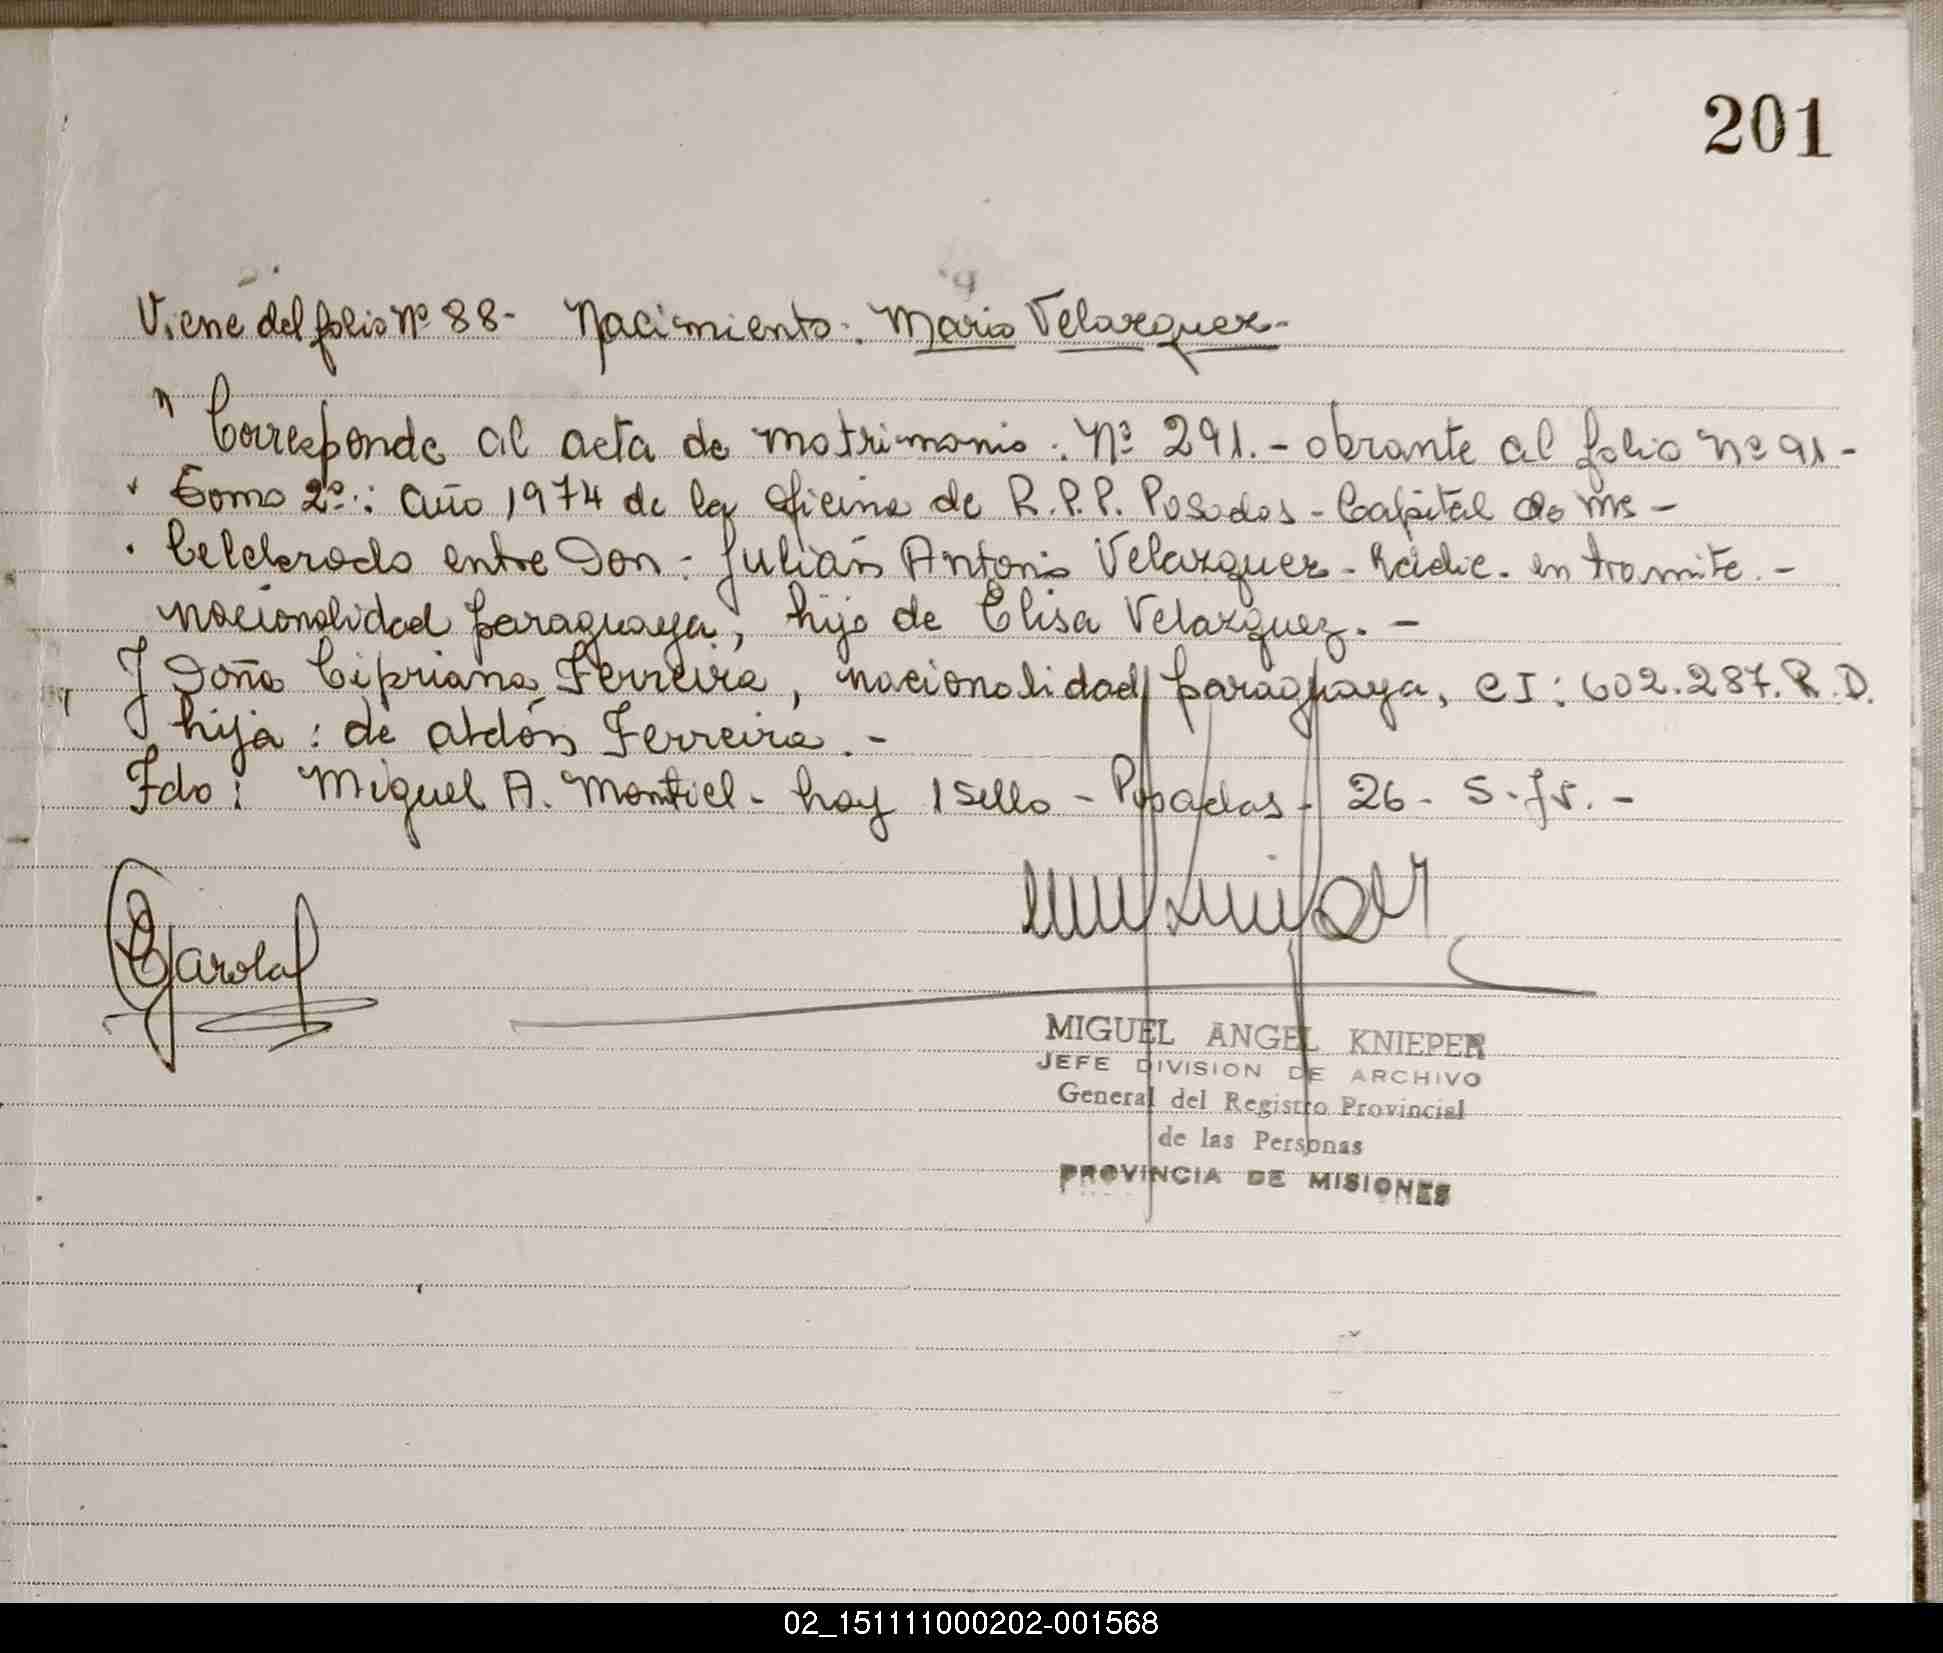 201
Viene del folio Nº 88- Nacimiento: Mario Velazquez-
" Corresponde al acta de matrimonio: Nº 291.- obrante al folio Nº 91-
Tomo 2º: Año 1974 de la oficina de R.P.P. Posadas - Capital de Ms-
Celebrado entre Don: Julián Antonio Velazquez - Radic. en tramite.-
nacionalidad paraguaya, hijo de Elisa Velazquez.-
Y Doña Cipriana Ferreira, nacionalidad paraguaya, CI: 602.287.R.D.
hija: de Abdón Ferreira.-
Fdo: Miguel A. Montiel - hay 1 sello - Posadas - 26-5-75.-
MIGUEL ANGEL KNIEPER
JEFE DIVISION DE ARCHIVO
General del Registro Provincial
de las Personas
PROVINCIA DE MISIONES
02_151111000202-001568